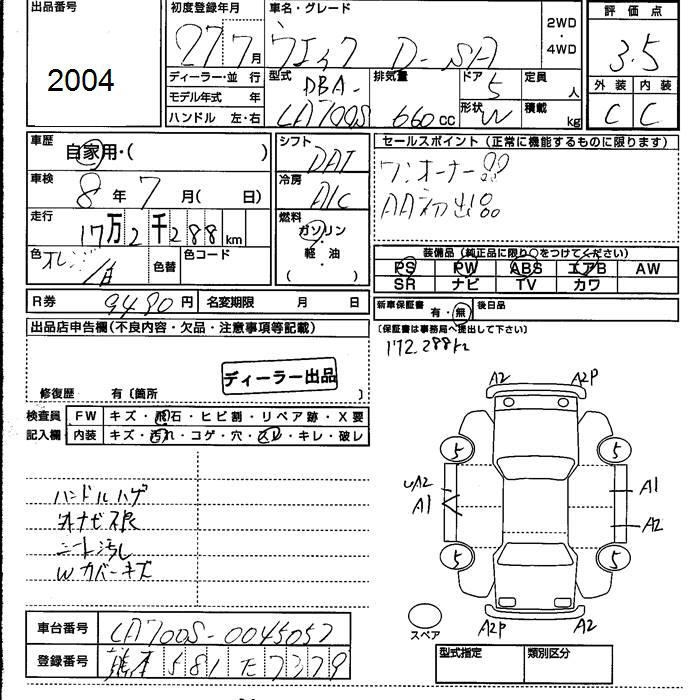 出品番号
2004
初度登録年月
27 7月
車名・グレード
ウェイク D-SA
2WD
・
4WD
評価点
3.5
外装 内装
C C
ディーラー・並 行
モデル年式 年
ハンドル 左・右
型式
DBA-
LA700S
排気量
660cc
ドア
5
形状
W
定員
人
積載
kg
車歴
自家用・( )
車検
8年7月( 日)
走行
17万2千288km
色 オレンジ/白
色替
色コード
R券 9480円
名変期限 月 日
シフト
DAT
冷房
A/C
燃料
ガソリン
・
軽・油
( )
セールスポイント(正常に機能するものに限ります)
ワンオーナー品
AA初出品
装備品(純正品に限り○をつけてください)
PS PW ABS エアB AW
SR ナビ TV カワ
新車保証書 有・無 後日品
〔保証書は事務局へ提出して下さい〕
172,288km
出品店申告欄(不良内容・欠品・注意事項等記載)
ディーラー出品
修復歴 有〔箇所 〕
検査員
記入欄
FW キズ・飛石・ヒビ割・リペア跡・X要
内装 キズ・汚れ・コゲ・穴・スレ・キレ・破レ
ハンドルハゲ
シート汚れ
Wカバーキズ
A2 A2P
5 5
UA2
A1
A1
A2
5 5
スペア
A2P A2
車台番号 LA700S-0045057
登録番号 熊本 581 て 7379
型式指定 類別区分